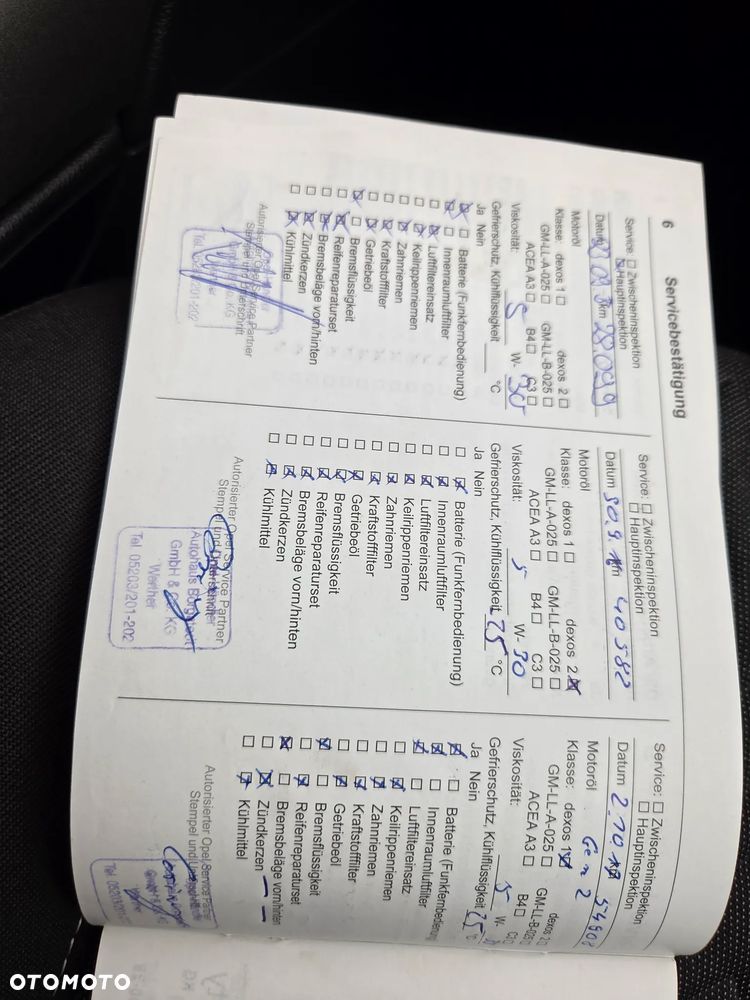 6 Servicebestätigung
Service: ☐ Zwischeninspektion
☒ Hauptinspektion
Datum km 28.099
Motoröl
Klasse: dexos 1 ☐ dexos 2 ☐
GM-LL-A-025 ☐ GM-LL-B-025 ☐
ACEA A3 ☐ B4 ☐ C3 ☐
Viskosität: 5 W- 30
Gefrierschutz, Kühlflüssigkeit °C
Ja Nein
Batterie (Funkfernbedienung)
Innenraumluftfilter
Luftfiltereinsatz
Keilrippenriemen
Zahnriemen
Kraftstofffilter
Getriebeöl
Bremsflüssigkeit
Reifenreparaturset
Bremsbeläge vorn/hinten
Zündkerzen
Kühlmittel
Autorisierter Opel Service Partner
Stempel und Unterschrift
Service: ☐ Zwischeninspektion
☐ Hauptinspektion
Datum 30.9. km 40582
Motoröl
Klasse: dexos 1 ☐ dexos 2 ☒
GM-LL-A-025 ☐ GM-LL-B-025 ☐
ACEA A3 ☐ B4 ☐ C3 ☐
Viskosität: 5 W- 30
Gefrierschutz, Kühlflüssigkeit 25 °C
Ja Nein
Batterie (Funkfernbedienung)
Innenraumluftfilter
Luftfiltereinsatz
Keilrippenriemen
Zahnriemen
Kraftstofffilter
Getriebeöl
Bremsflüssigkeit
Reifenreparaturset
Bremsbeläge vorn/hinten
Zündkerzen
Kühlmittel
Autorisierter Opel Service Partner
Stempel und
Autohaus
GmbH & KG
Werther
Tel 05203/201-202
Service: ☐ Zwischeninspektion
☐ Hauptinspektion
Datum 2.10.
Motoröl Gen 2
Klasse: dexos 1 ☒ dexos 2 ☐
GM-LL-A-025 ☐ GM-LL-B-025 ☐
ACEA A3 ☐ B4 ☐
Viskosität: 5 W-
Gefrierschutz, Kühlflüssigkeit 25
Ja Nein
Batterie (Funkfernbedienung
Innenraumluftfilter
Luftfiltereinsatz
Keilrippenriemen
Zahnriemen
Kraftstofffilter
Getriebeöl
Bremsflüssigkeit
Reifenreparaturset
Bremsbeläge vorn/hinten
Zündkerzen
Kühlmittel
Autorisierter Opel Service Partner
Stempel und
OTOMOTO